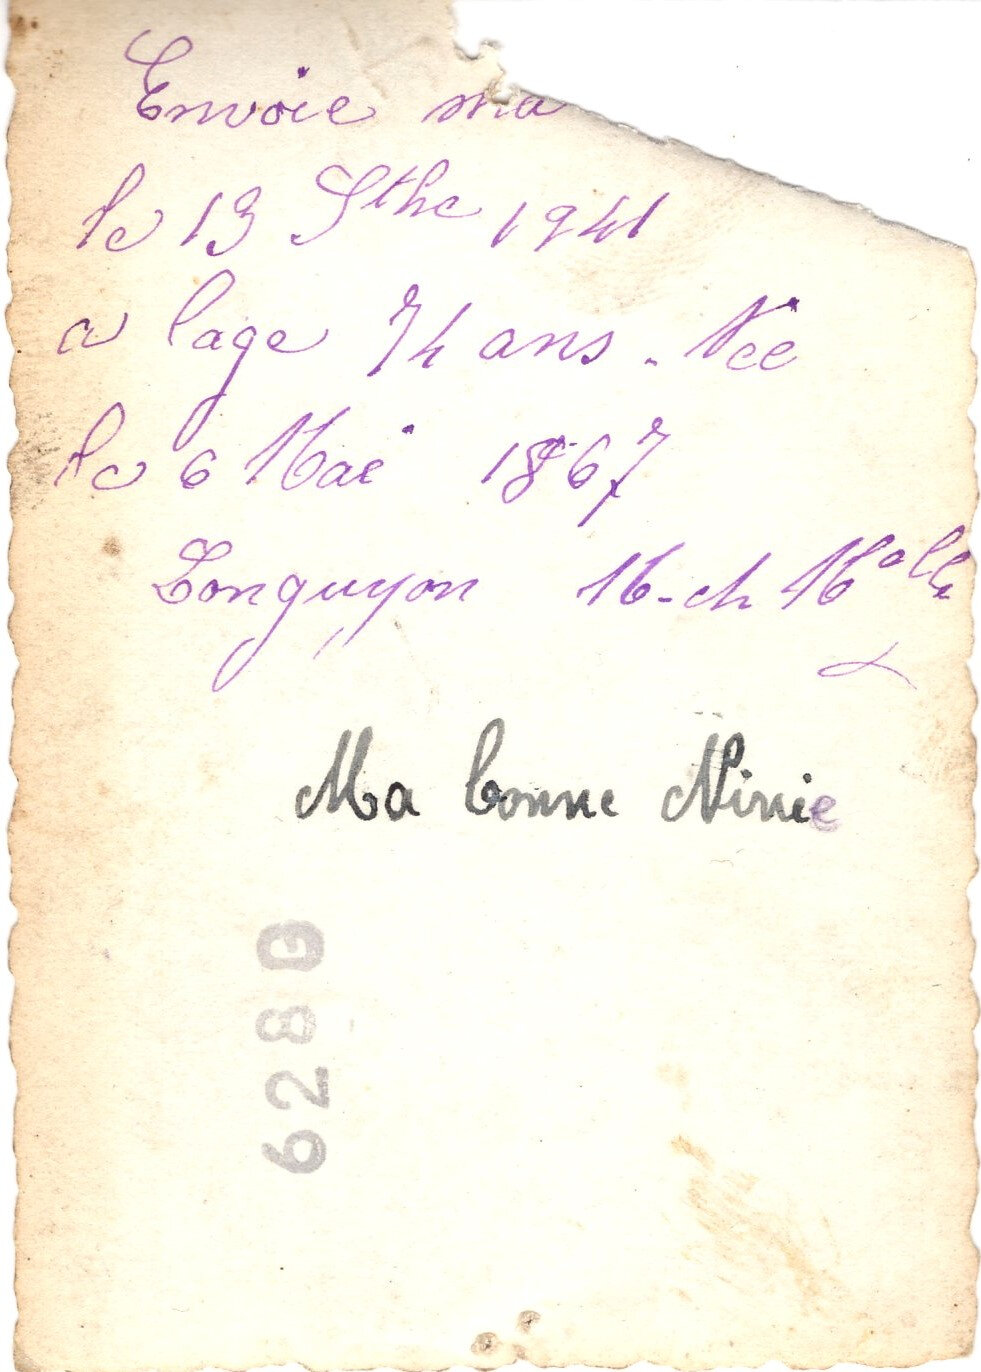 Envoie ma
le 13 Sthe 1941
a lage 74 ans. Née
le 6 Mai 1867
Longuyon M-et Mlle
Ma bonne Ninie
6280